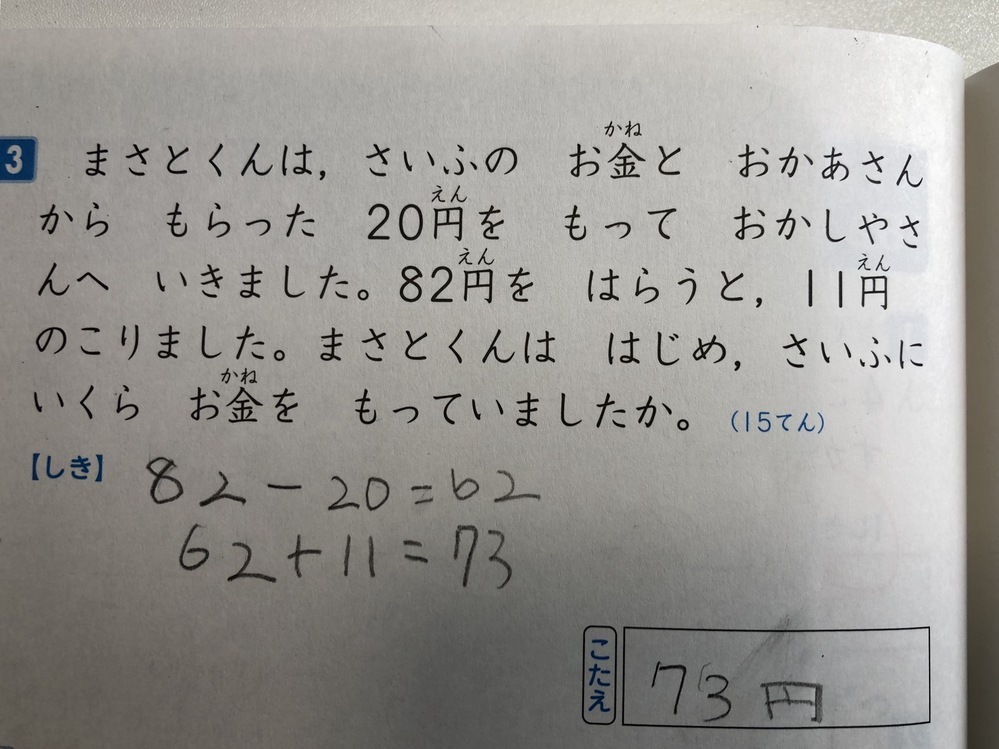 3 まさとくんは，さいふの お金と おかあさん
から もらった 20円を もって おかしやさ
んへ いきました。82円を はらうと，11円
のこりました。まさとくんは はじめ，さいふに
いくら お金を もっていましたか。（15てん）
【しき】 82-20=62
62+11=73
こたえ 73円